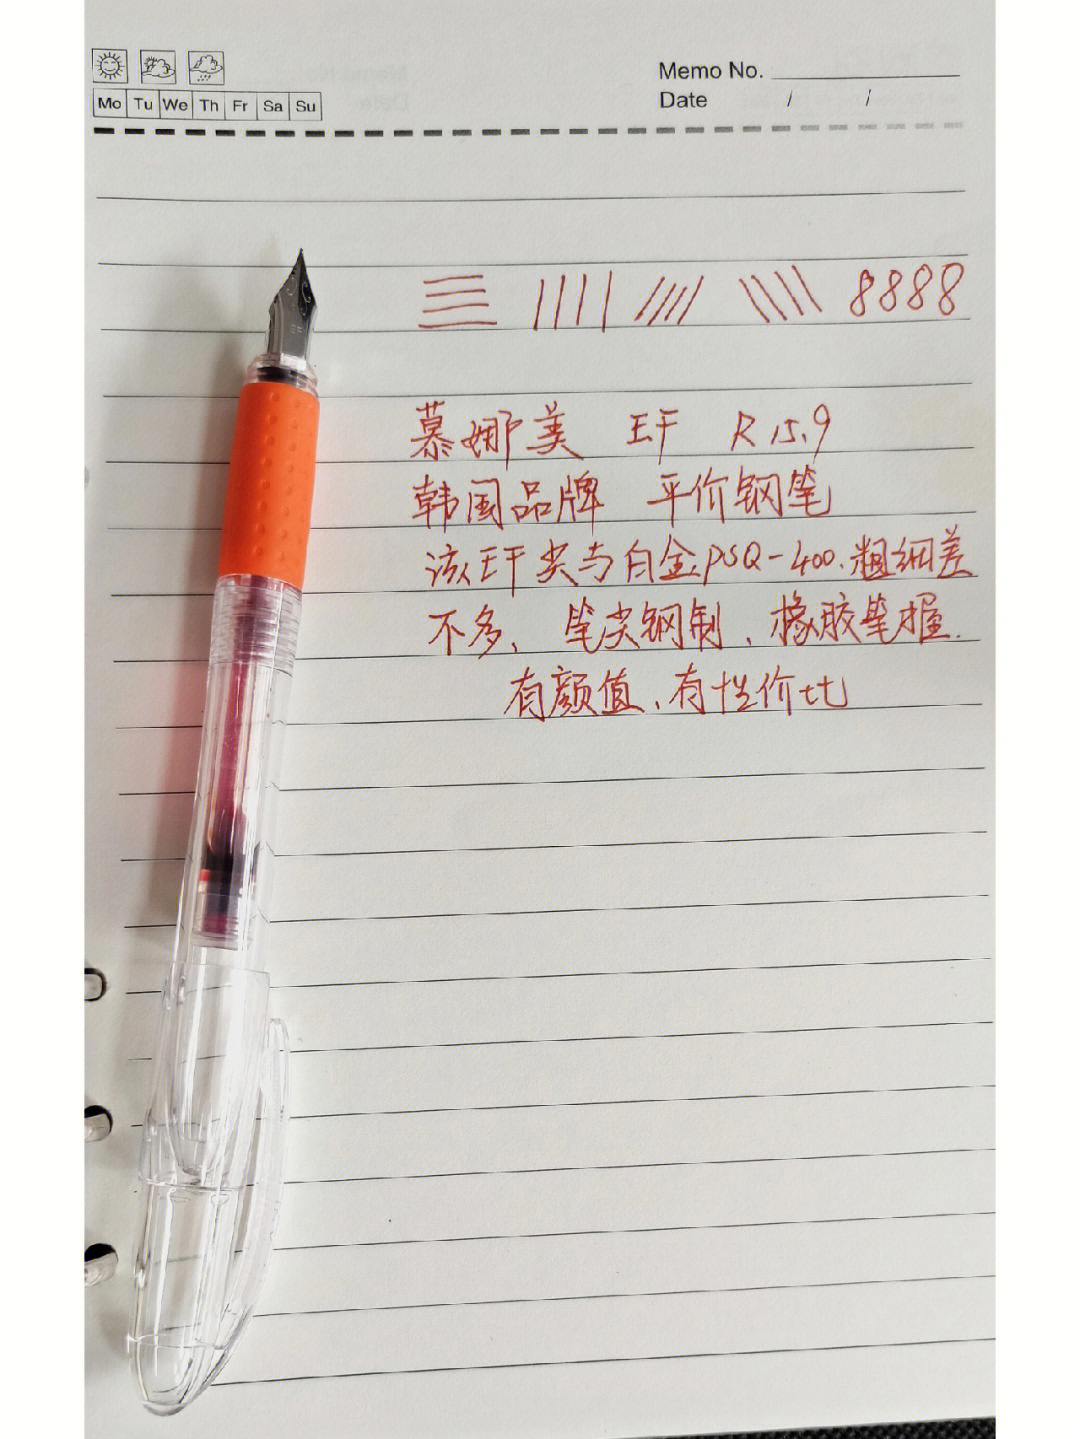 Memo No.
Mo Tu We Th Fr Sa Su
Date / /
8888
慕娜美 EF R 15.9
韩国品牌 平价钢笔
该EF尖与白金PSQ-400.粗细差
不多、笔尖钢制、橡胶笔握.
有颜值、有性价比